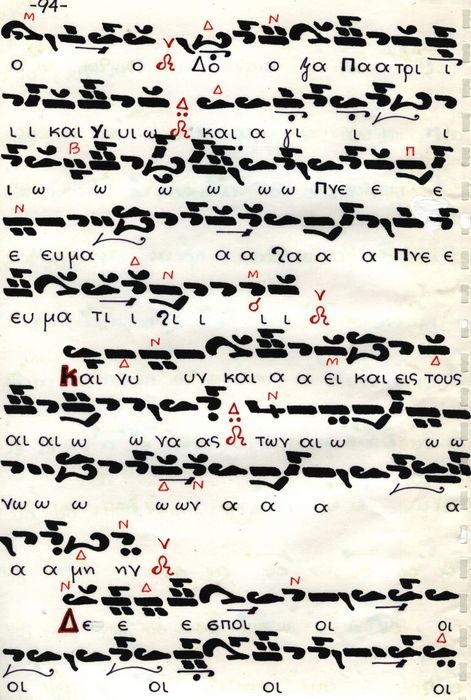 -94-
ο ο Δο ο ξα Πα α τρι ι
ι ι και Υι υι ω και α γι
ι ω ω ω ω ω ω Πνε ε ε
ε ευ μα α α α α α Πνε ε
ευ μα τι ι ι ι ι ι
Και νυ υν και α α ει και εις τους
αι αι ω ω να ας των αι ω ω ω
νω ω ω ω ων α α α α
α α μη ην
Δε ε ε ε σποι οι οι
οι οι οι οι